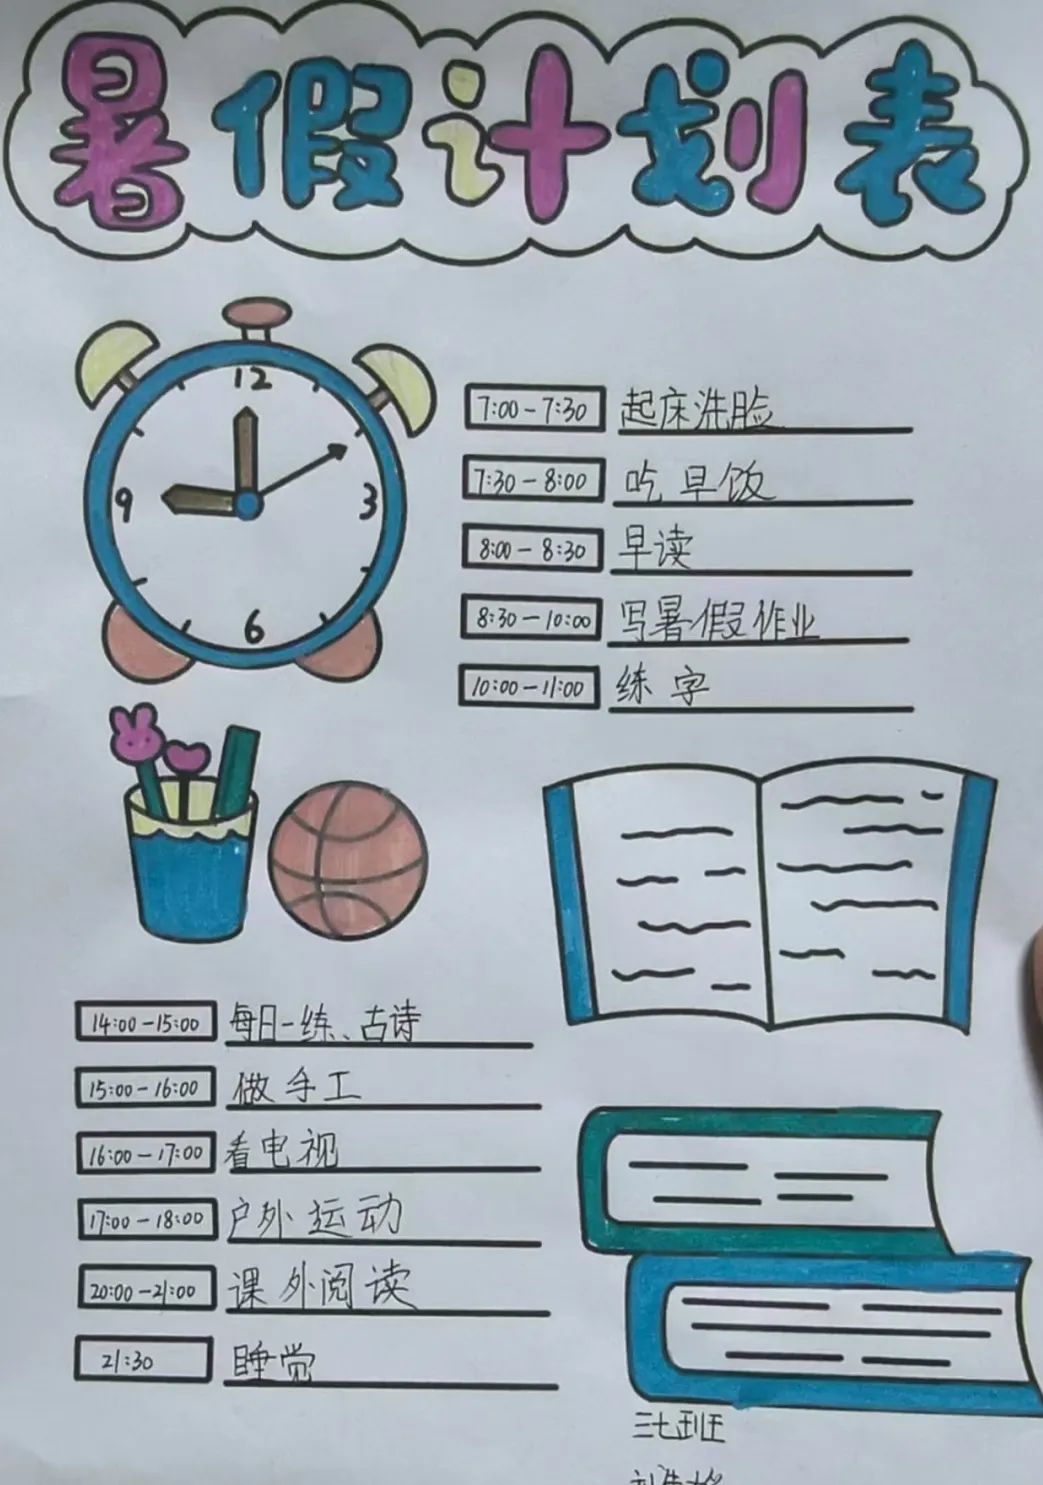 暑假计划表
12
9
3
6
7:00-7:30 起床洗脸
7:30-8:00 吃早饭
8:00-8:30 早读
8:30-10:00 写暑假作业
10:00-11:00 练字
14:00-15:00 每日一练、古诗
15:00-16:00 做手工
16:00-17:00 看电视
17:00-18:00 户外运动
20:00-21:00 课外阅读
21:30 睡觉
三七班